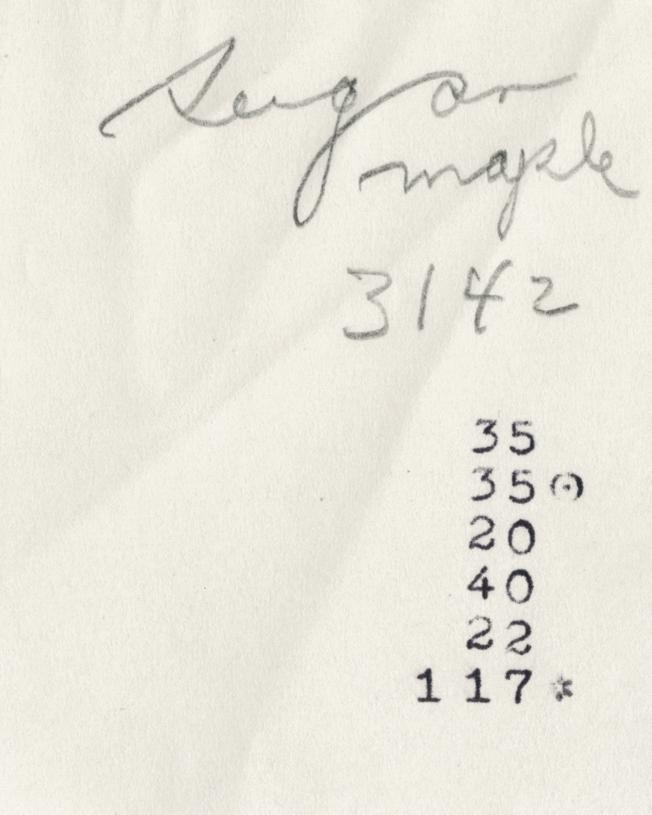 Sugar
maple
3142
35
35⊙
20
40
22
117*